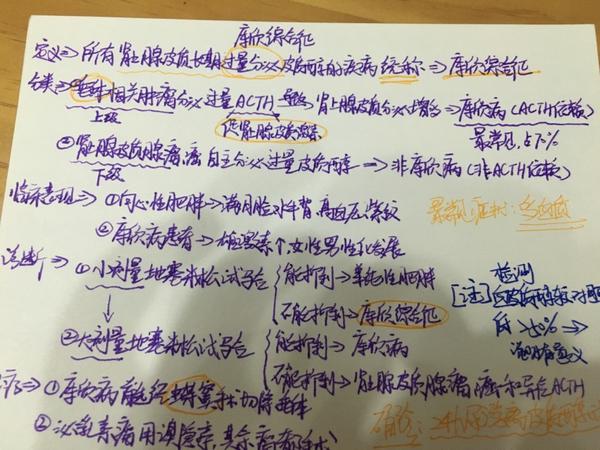 库欣综合征
定义⇒所有肾上腺皮质长期过量分泌皮质醇的疾病统称⇒库欣综合征
分类⇒垂体相关肿瘤分泌过量ACTH→肾上腺皮质分泌增多⇒库欣病(ACTH依赖)
上级 促肾上腺皮质激素 最常见,占70%
②肾上腺皮质腺瘤,癌自主分泌过量皮质醇⇒非库欣病(非ACTH依赖)
下级
临床表现⇒①向心性肥胖→满月脸,水牛背,高血压,紫纹
最常见
②库欣病患者→雄激素个,女性男性化发展
诊断⇒①小剂量地塞米松试验 能抑制→单纯性肥胖
不能抑制→库欣综合征
[注]检测
后>50%→
②大剂量地塞米松试验 能抑制→库欣病
不能抑制→肾上腺皮质腺瘤,癌和异位ACTH
疗⇒①库欣病首选经蝶窦手术切除垂体
②泌乳素瘤用溴隐亭,其余瘤都手术